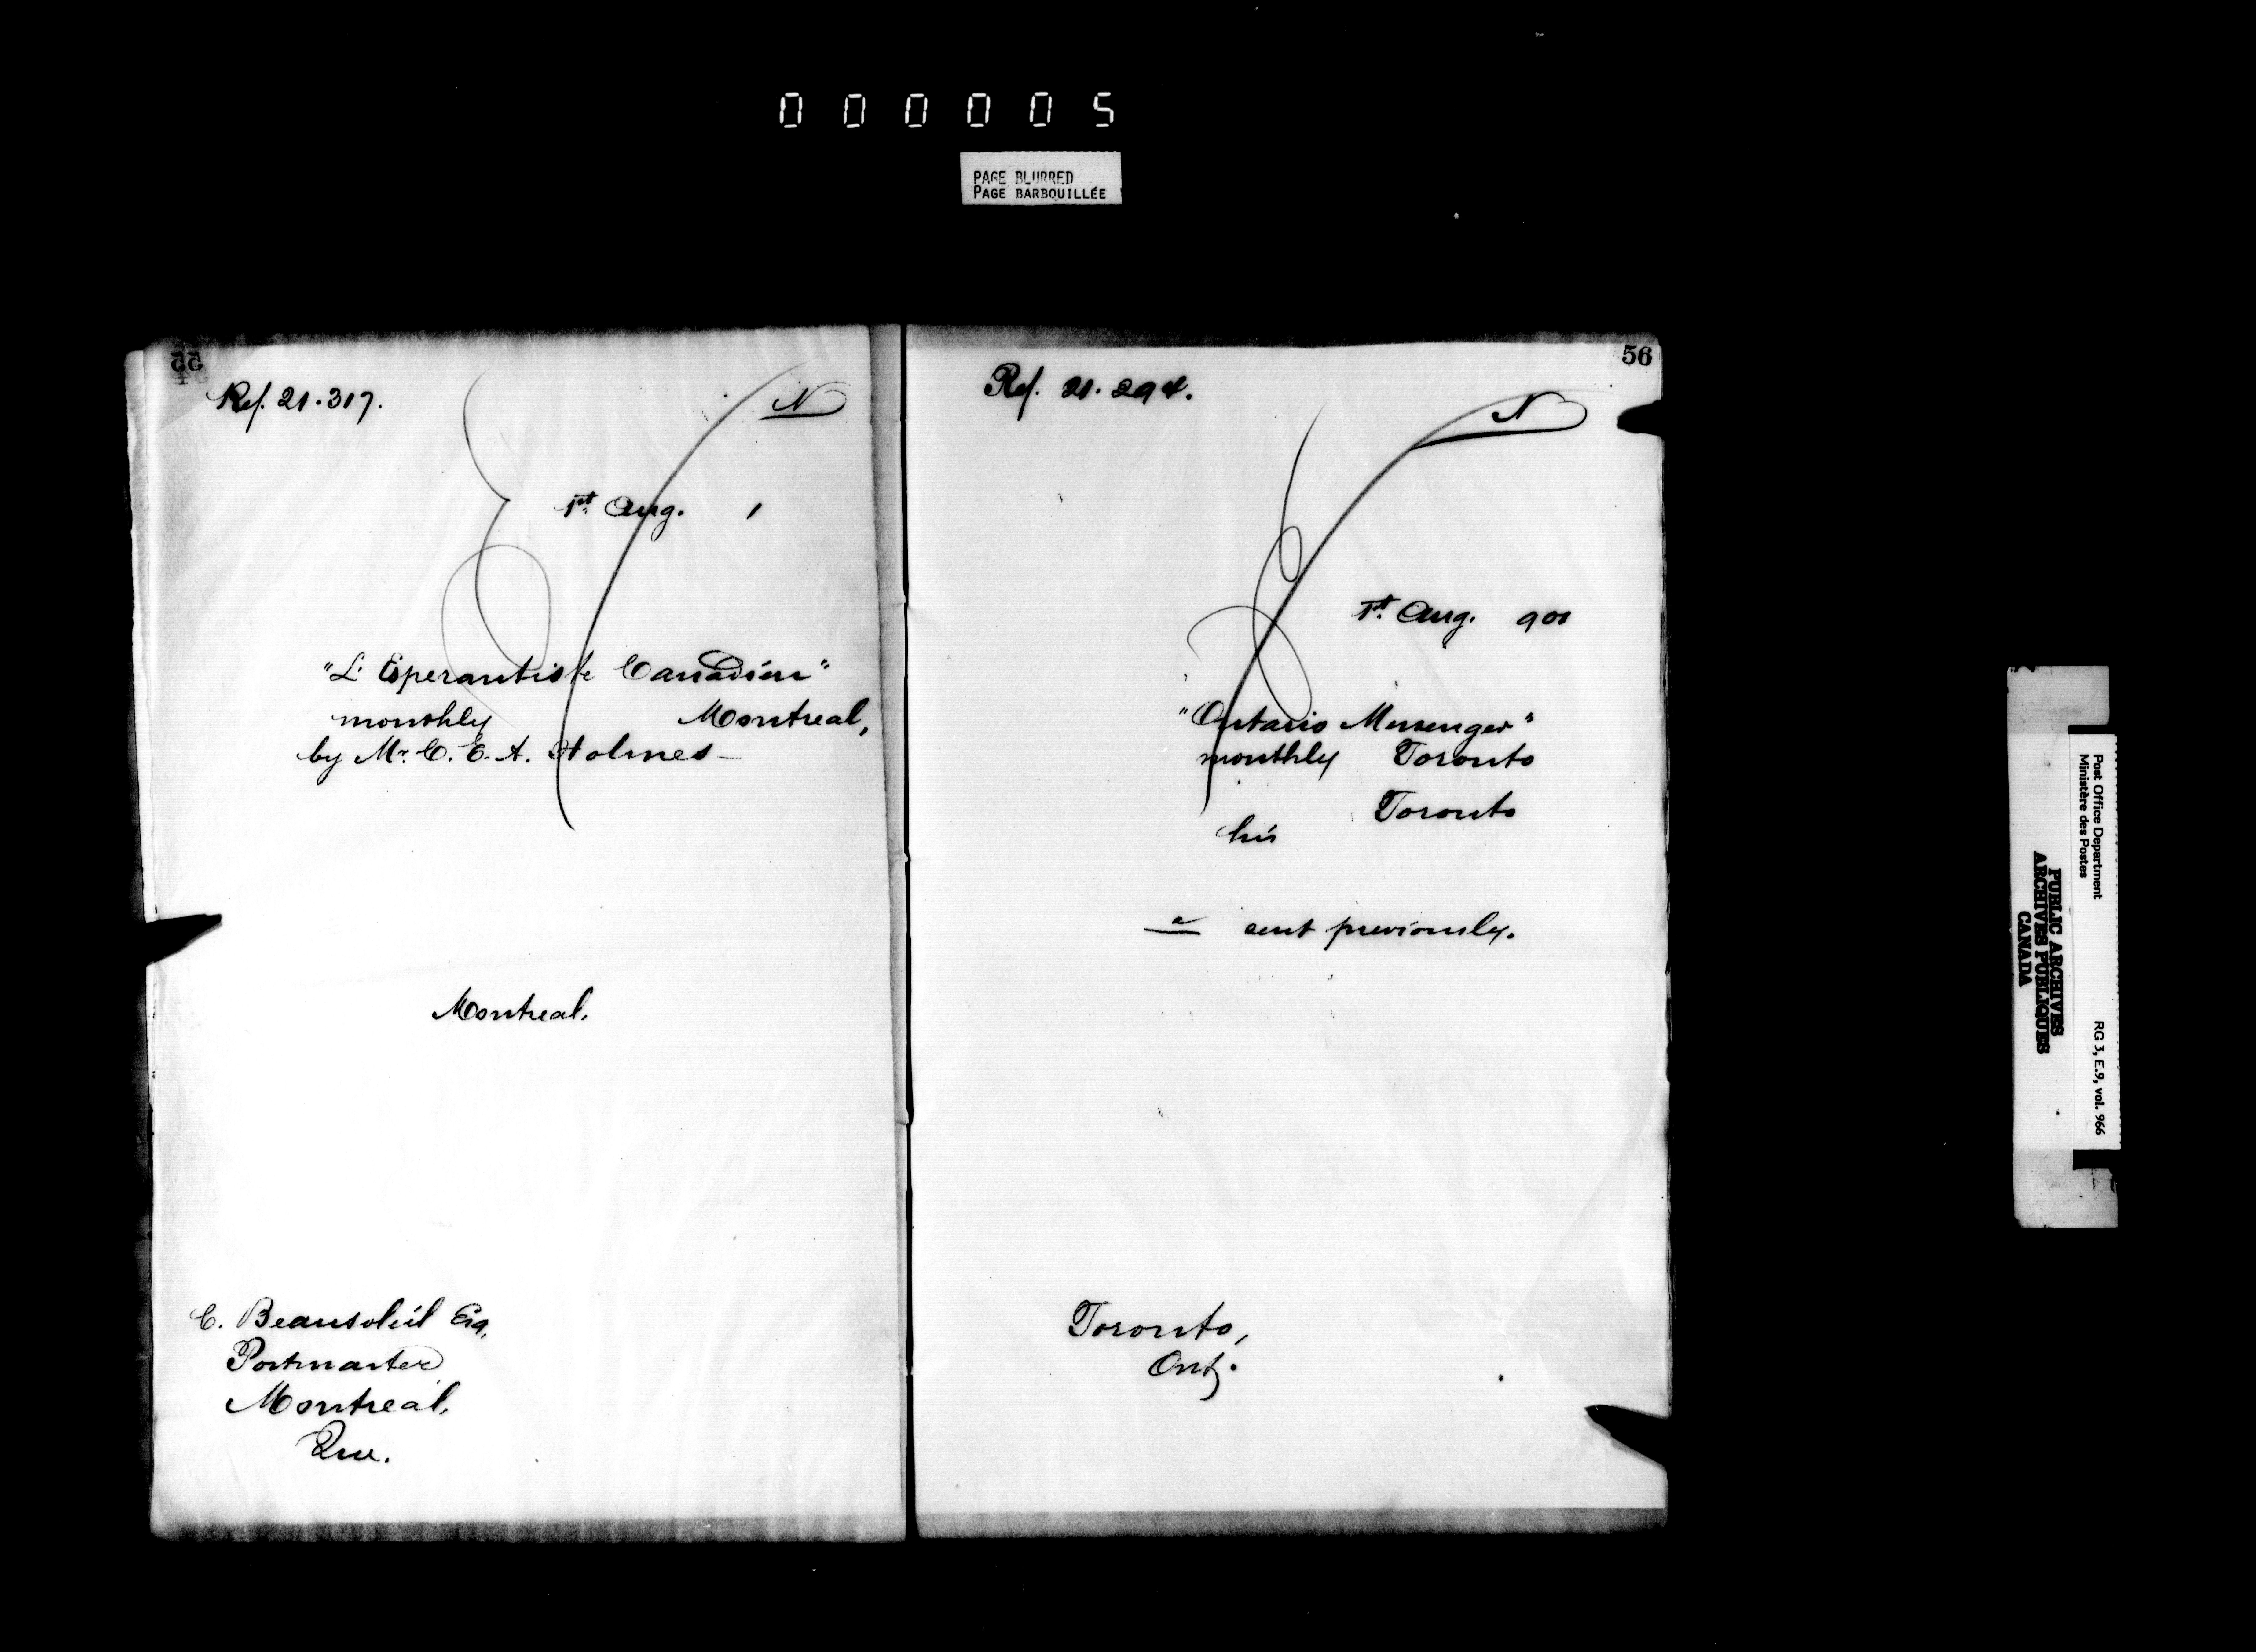 000005
PAGE BLURRED
PAGE BARBOUILLÉE
55
Ref. 21.317.
N
1st Aug. 1
"L'Esperantiste Canadien"
monthly Montreal,
by Mr. C. E. A. Holmes
Montreal.
C. Beausoleil Esq,
Postmaster
Montreal,
Que.
56
Ref. 21.294.
N
1st. Aug. 901
"Ontario Messenger"
monthly Toronto
Toronto
his
a sent previously.
Toronto,
Ont.
Post Office Department
Ministère des Postes
RG 3, E.9, vol. 966
PUBLIC ARCHIVES
ARCHIVES PUBLIQUES
CANADA